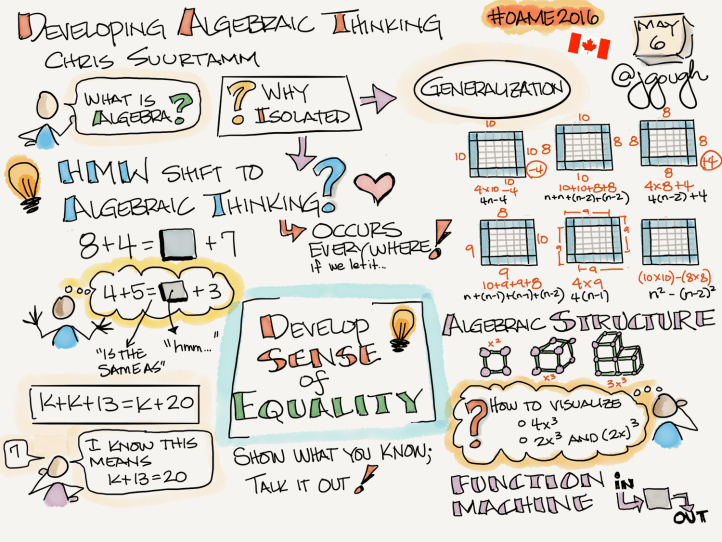 Developing Algebraic Thinking
Chris Suurtamm
#OAME2016
MAY
6
@jgough
WHAT IS
ALGEBRA?
? WHY
ISOLATED
GENERALIZATION
HMW SHIFT TO
ALGEBRAIC THINKING?
OCCURS
EVERYWHERE!
if we let it...
8+4= +7
4+5= +3
"IS THE
SAME AS"
"hmm..."
K+K+13=K+20
7
I KNOW THIS
MEANS
K+13=20
DEVELOP
SENSE
of
EQUALITY
SHOW WHAT YOU KNOW;
TALK IT OUT!
10
10 10
10
-4
4×10-4
4n-4
10
8 8
10
10+10+8+8
n+n+(n-2)+(n-2)
8
8 8
8
+4
4×8+4
4(n-2)+4
8
9 10
9
10+9+9+8
n+(n-1)+(n-1)+(n-2)
9
9 9
9
4×9
4(n-1)
(10×10)-(8×8)
n²-(n-2)²
ALGEBRAIC STRUCTURE
x²
x³
3x³
? HOW TO VISUALIZE
4x³
2x³ AND (2x)³
FUNCTION
MACHINE
IN
OUT